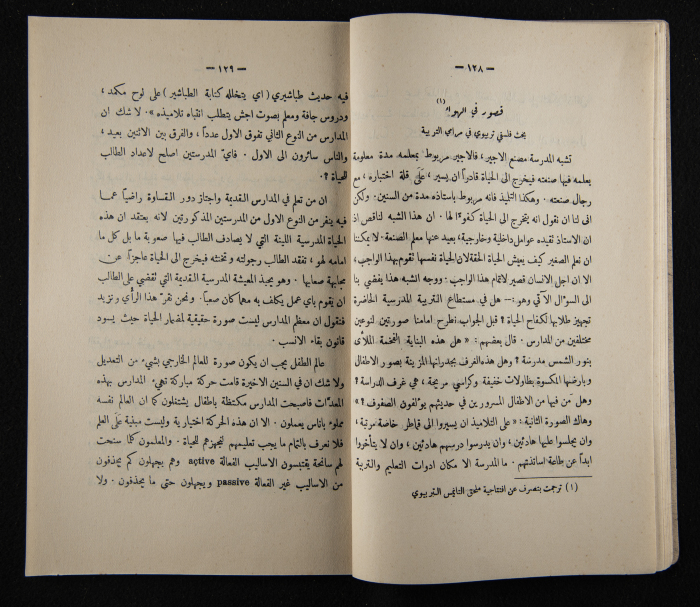 — ١٢٨ —
قصور في الهواء (١)
بحث فلسفي تربيوي في مرامي التربية
تشبه المدرسة مصنع الاجير ، فالاجير مربوط بمعلمه مدة معلومة
يعلمه فيها صنعته فيخرج الى الحياة قادراً ان يسير ، على قلة اختباره ، مع
رجال صنعته . وهكذا التلميذ فانه مربوط باستاذه مدة من السنين . ولكن
انى لنا ان نقول انه يتخرج الى الحياة كفوءًا لها . ان هذا الشبه لناقص اذ
ان الاستاذ تقيده عوامل داخلية وخارجية ، بعيد عنها معلم الصنعة . لا يمكننا
ان نعلم الصغير كيف يعيش الحياة الحقة لان الحياة نفسها تقوم بهذا الواجب ،
الا ان اجل الانسان قصير لاتمام هذا الواجب . ووجه الشبه هذا يفضي بنا
الى السؤال الآتي وهو :— هل في مستطاع التربية المدرسية الحاضرة
تجهيز طلابها لكفاح الحياة ؟ قبل الجواب نطرح امامنا صورتين لنوعين
مختلفين من المدارس . قال بعضهم : « هل هذه البناية الفخمة الملأى
بنور الشمس مدرسة ؟ وهل هذه الغرف بجدرانها المزينة بصور الاطفال
وبارضها المكسوة بطاولات خفيفة وكراسي مريحة ، هي غرف الدراسة ؟
وهل مَن فيها من الاطفال المسرورين في حديثهم يؤلفون الصفوف ؟ »
وهاك الصورة الثانية : « على التلاميذ ان يسيروا الى قماطر خاصة مرتبة ،
وان يجلسوا عليها هادئين ، وان يدرسوا درسهم هادئين ، وان لا يتأخروا
ابداً عن طاعة اساتذتهم . ما المدرسة الا مكان ادوات التعليم والتربية
(١) ترجمت بتصرف عن افتتاحية ملحق التايمس التربيوي
— ١٢٩ —
فيه حديث طباشيري ( اي يتخلله كتابة الطباشير ) على لوح مكمد ،
ودروس جافة ومعلم بصوت اجش يتطلب انتباه تلاميذه » . لا شك ان
المدارس من النوع الثاني تفوق الاول عدداً ، والفرق بين الاثنين بعيد ،
والناس سائرون الى الاول . فايّ المدرستين اصلح لاعداد الطالب
للحياة ؟ .
ان من تعلم في المدارس القديمة واجتاز دور القساوة راضياً عما
فيه ينفر من النوع الاول من المدرستين المذكورتين لانه يعتقد ان هذه
الحياة المدرسية اللينة التي لا يصادف الطالب فيها صعوبة ما بل كل ما
امامه لهو ، تفقد الطالب رجولته و تخنثه فيخرج الى الحياة عاجزاً عن
مجابهة صعابها . وهو يحبذ المعيشة المدرسية القديمة التي تقضي على الطالب
ان يقوم باي عمل يكلف به مهما كان صعباً . ونحن نقرّ هذا الرأي ونزيد
فنقول ان معظم المدارس ليست صورة حقيقية لمضمار الحياة حيث يسود
قانون بقاء الانسب .
عالم الطفل يجب ان يكون صورة للعالم الخارجي بشيء من التعديل
ولا شك ان في السنين الاخيرة قامت حركة مباركة تهيء المدارس بهذه
المعدّات فاصبحت المدارس مكتظة باطفال يشتغلون كما ان العالم نفسه
مملوء باناس يعملون . الا ان هذه الحركة اختيارية وليست مبنية على العلم
فلا نعرف بالتمام ما يجب تعليمهم لتجهزهم للحياة . والمعلمون كما سنحت
لهم سانحة يقتبسون الاساليب الفعالة active وهم يجهلون كم يحذفون
من الاساليب غير الفعالة passive ويجهلون حتى ما يحذفون . ولا